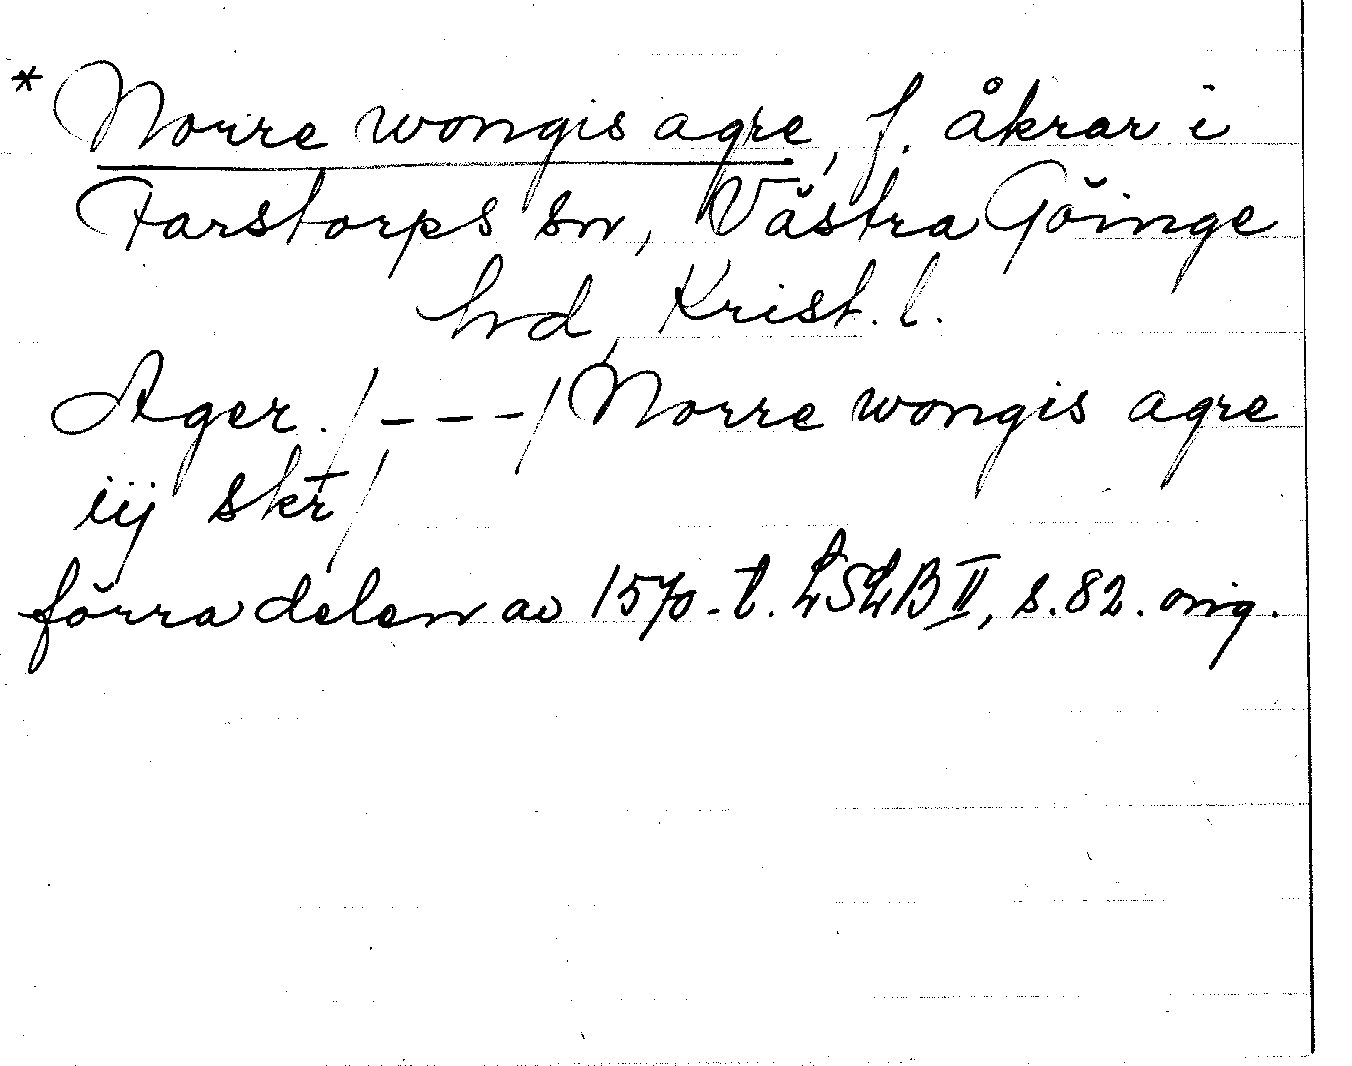 * Norre wongis agre, f. åkrar i
Farstorps sn, Västra Göinge
hrd, Krist. l.
Ager. /---/ Norre wongis agre
iij skr̄/
förra delen av 1570-t. LSLB II, s. 82. orig.